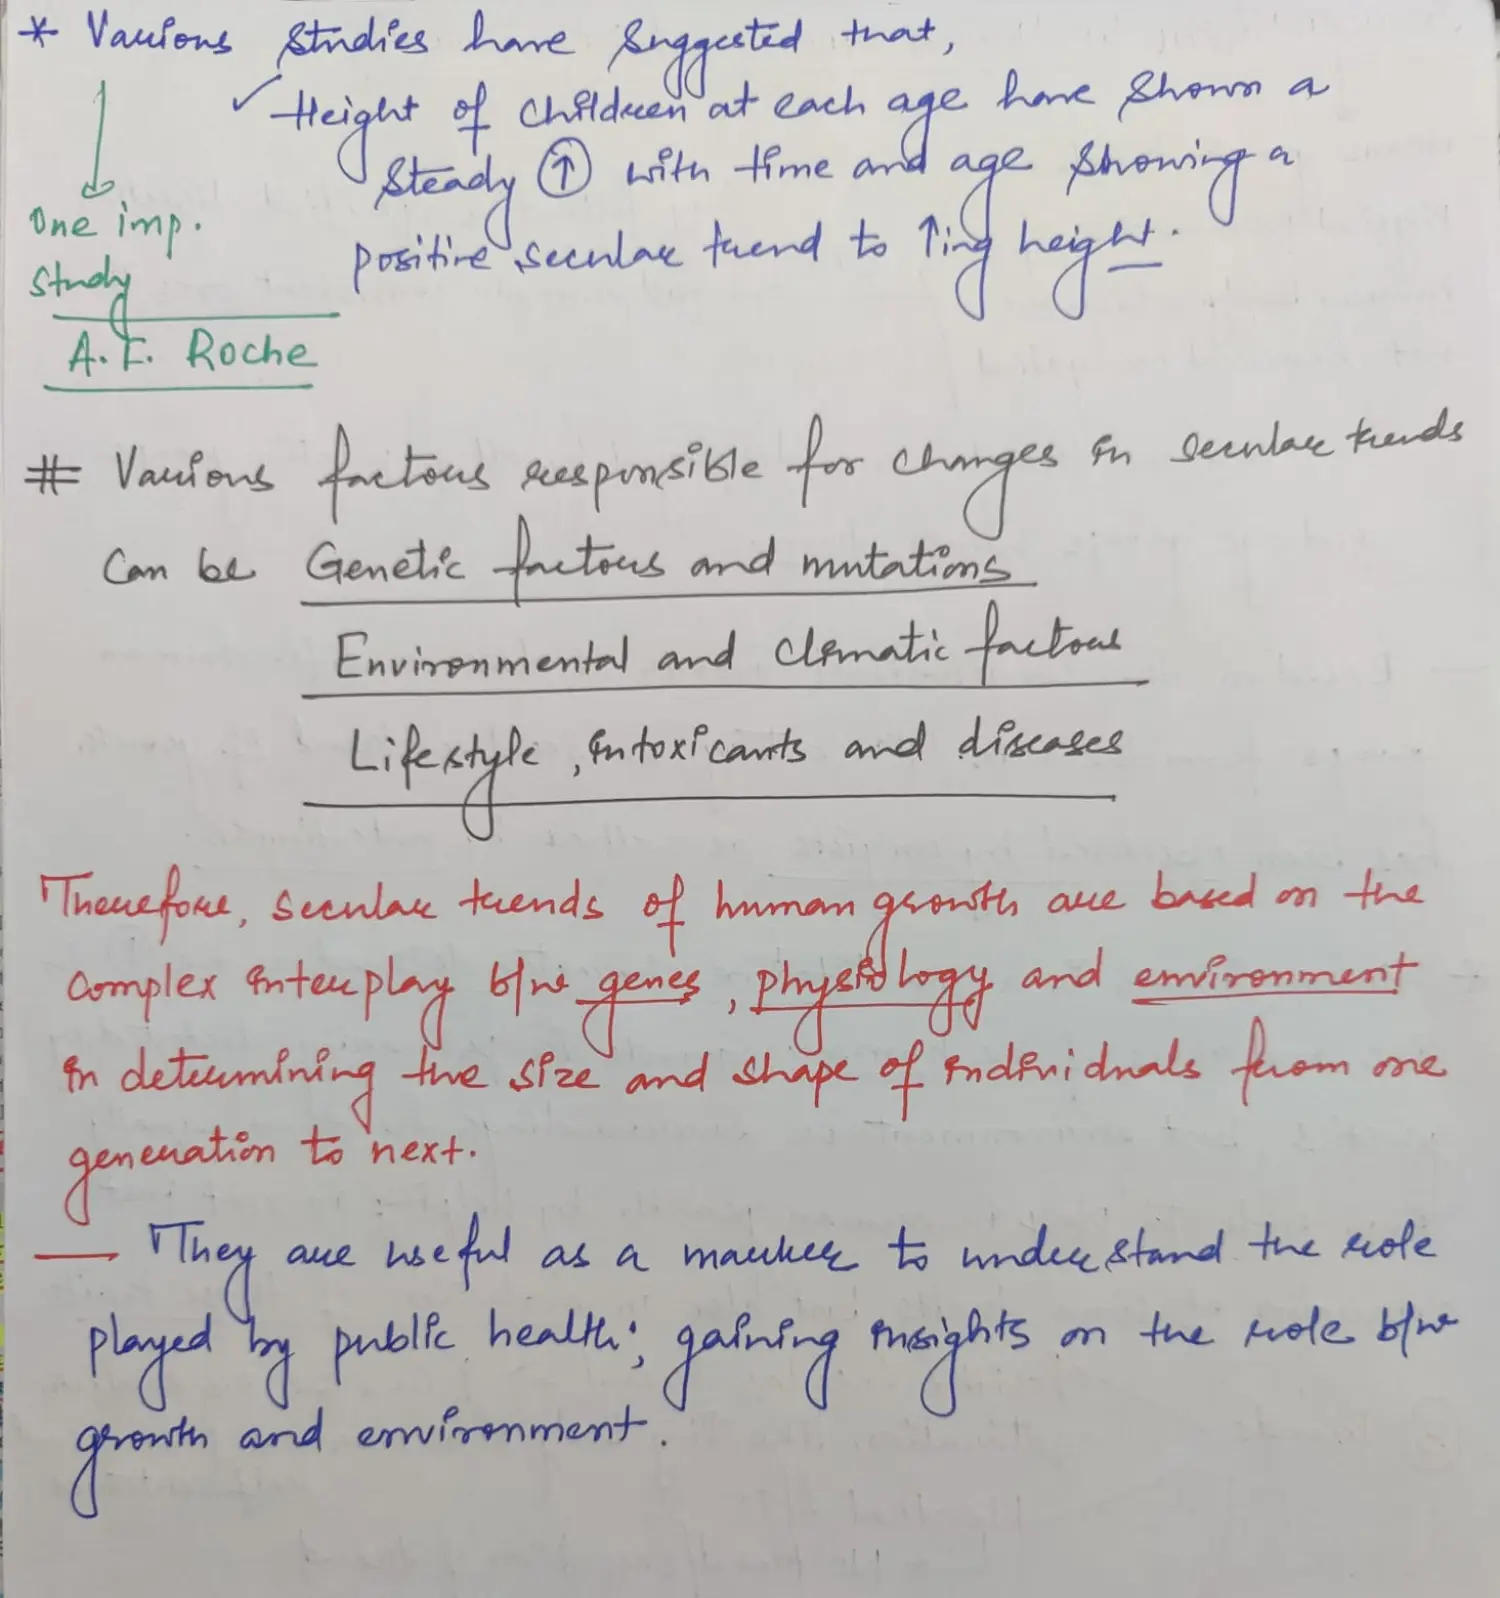 * Various studies have suggested that,
✓ Height of children at each age have shown a
steady ↑ with time and age showing a
positive secular trend to ↑ing height.
One imp.
study
A. F. Roche
# Various factors responsible for changes in secular trends
can be Genetic factors and mutations
Environmental and climatic factors
Lifestyle, intoxicants and diseases
Therefore, secular trends of human growth are based on the
complex interplay b/w genes, physiology and environment
in determining the size and shape of individuals from one
generation to next.
— They are useful as a marker to understand the role
played by public health; gaining insights on the role b/w
growth and environment.